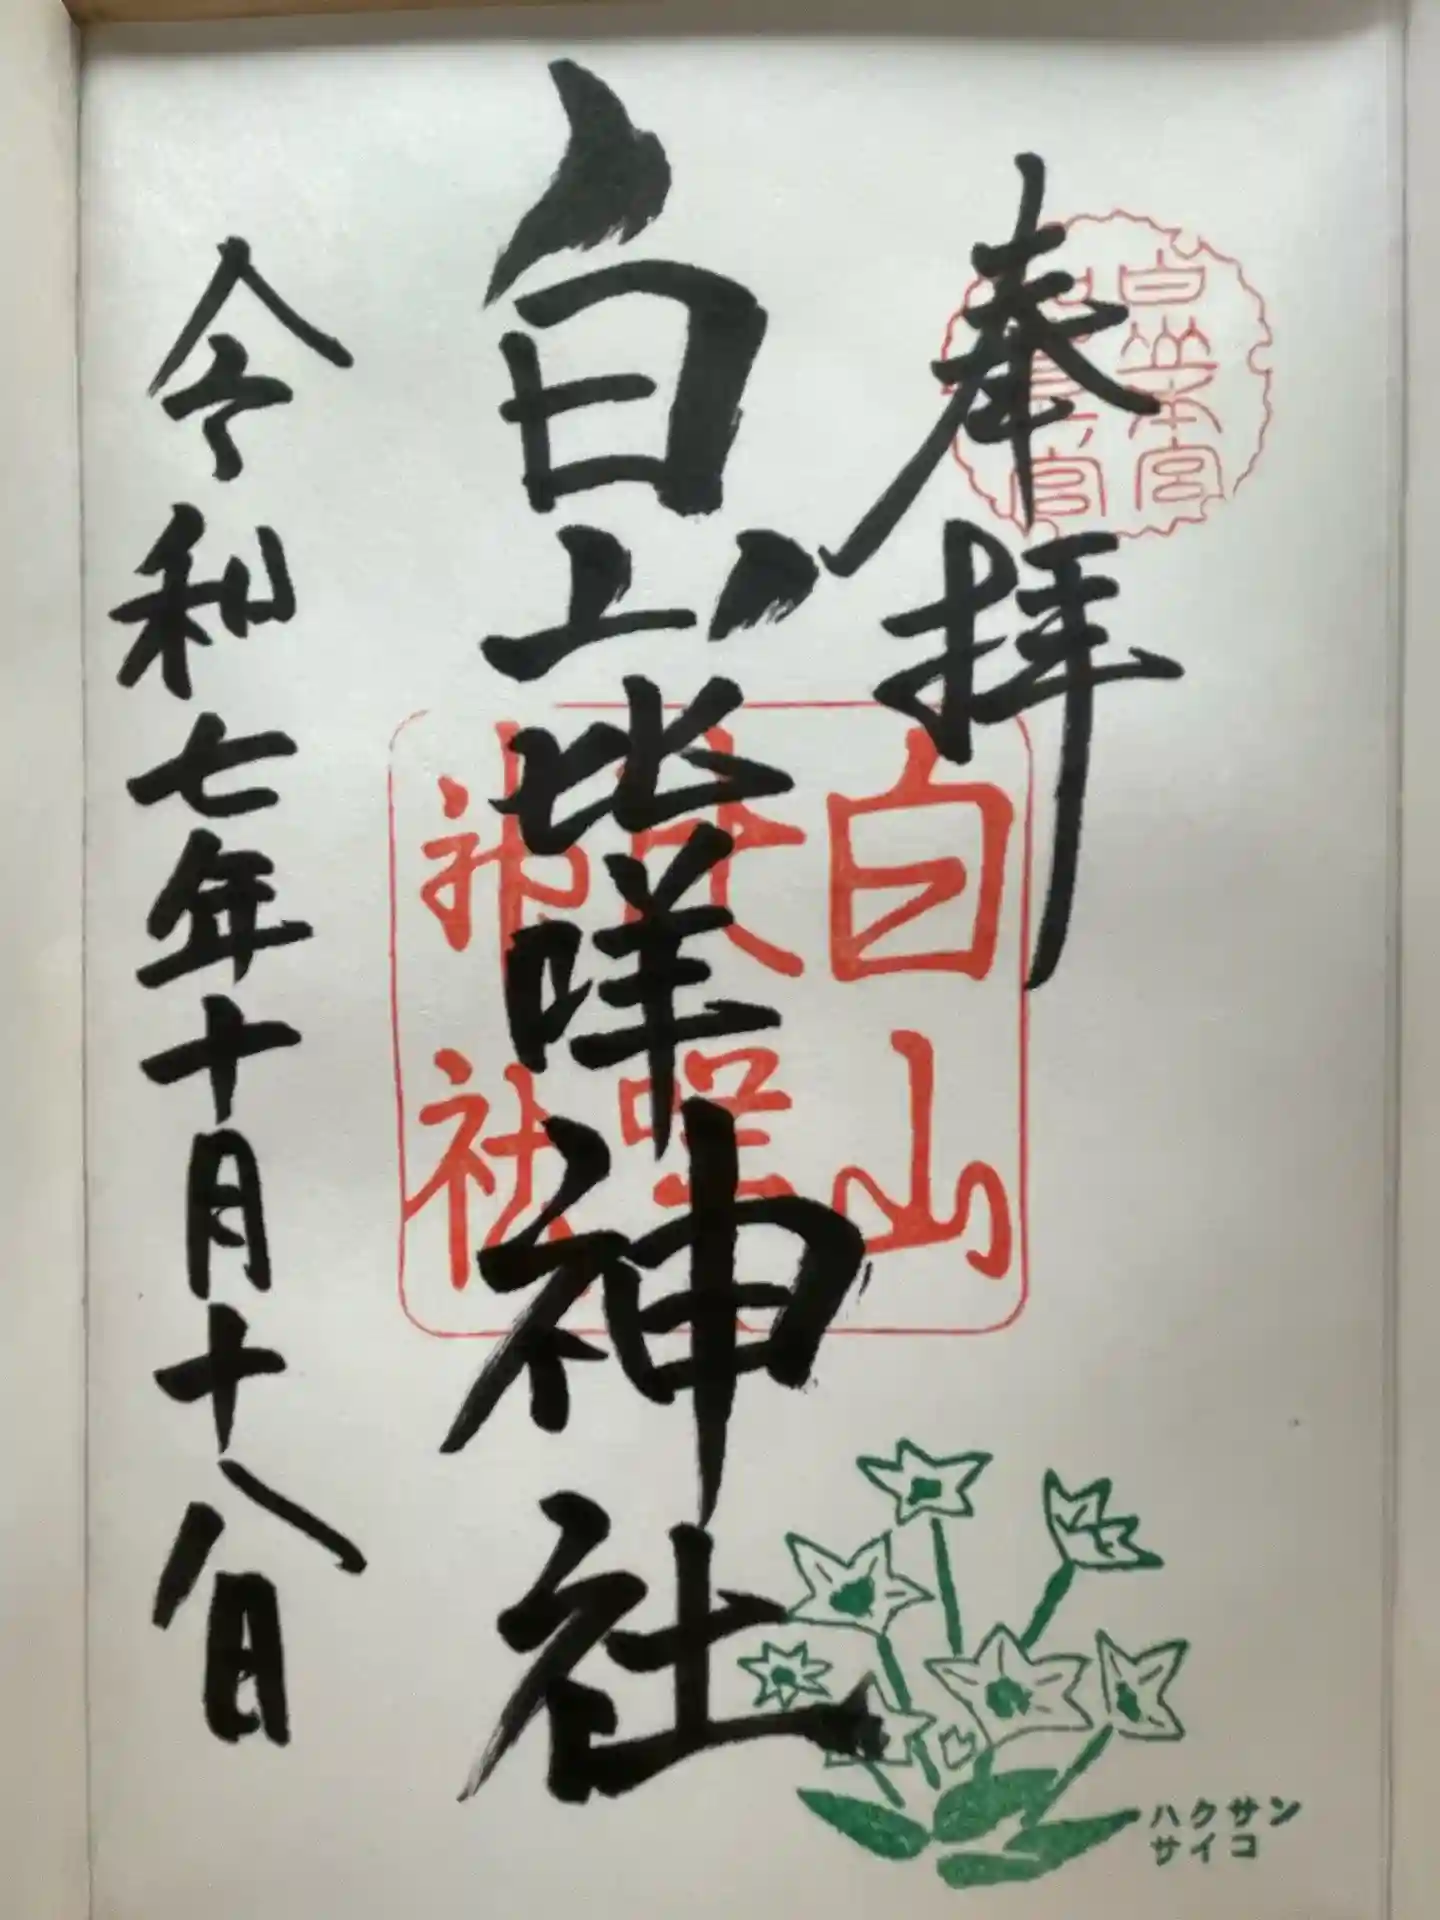 奉拝
白山本宮
白山比咩神社
白山
比咩
神社
令和七年十月十八日
ハクサン
サイコ